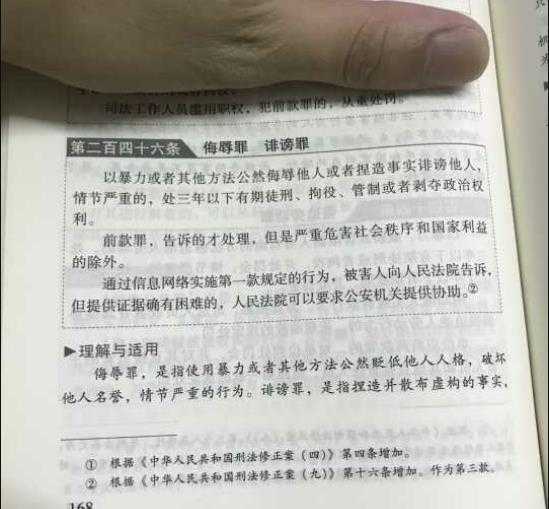 司法工作人员滥用职权，犯前款罪的，从重处罚。
第二百四十六条 侮辱罪 诽谤罪
以暴力或者其他方法公然侮辱他人或者捏造事实诽谤他人，
情节严重的，处三年以下有期徒刑、拘役、管制或者剥夺政治权
利。
前款罪，告诉的才处理，但是严重危害社会秩序和国家利益
的除外。
通过信息网络实施第一款规定的行为，被害人向人民法院告诉，
但提供证据确有困难的，人民法院可以要求公安机关提供协助。②
▶理解与适用
侮辱罪，是指使用暴力或者其他方法公然贬低他人人格，破坏
他人名誉，情节严重的行为。诽谤罪，是指捏造并散布虚构的事实，
① 根据《中华人民共和国刑法修正案（四）》第四条增加。
② 根据《中华人民共和国刑法修正案（九）》第十六条增加。作为第三款。
168